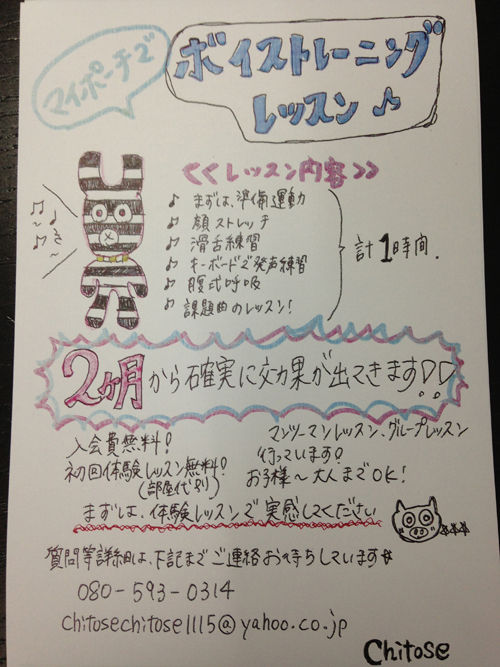 マイポーチで
ボイストレーニング
レッスン♪
<<レッスン内容>>
♪ まずは、準備運動
♪ 顔ストレッチ
♪ 滑舌練習
♪ キーボードで発声練習
♪ 腹式呼吸
♪ 課題曲のレッスン!
計1時間.
♫ ♪ ♫ ♪ き〜
2ヶ月から確実に効果が出てきます!!
入会費無料!
初回体験レッスン無料!
(部屋代別)
マンツーマンレッスン、グループレッスン
行っています!
お子様〜大人までOK!
まずは、体験レッスンで実感してください
質問等詳細は、下記までご連絡お待ちしています☆
080-593-0314
chitosechitose1115@yahoo.co.jp
Chitose